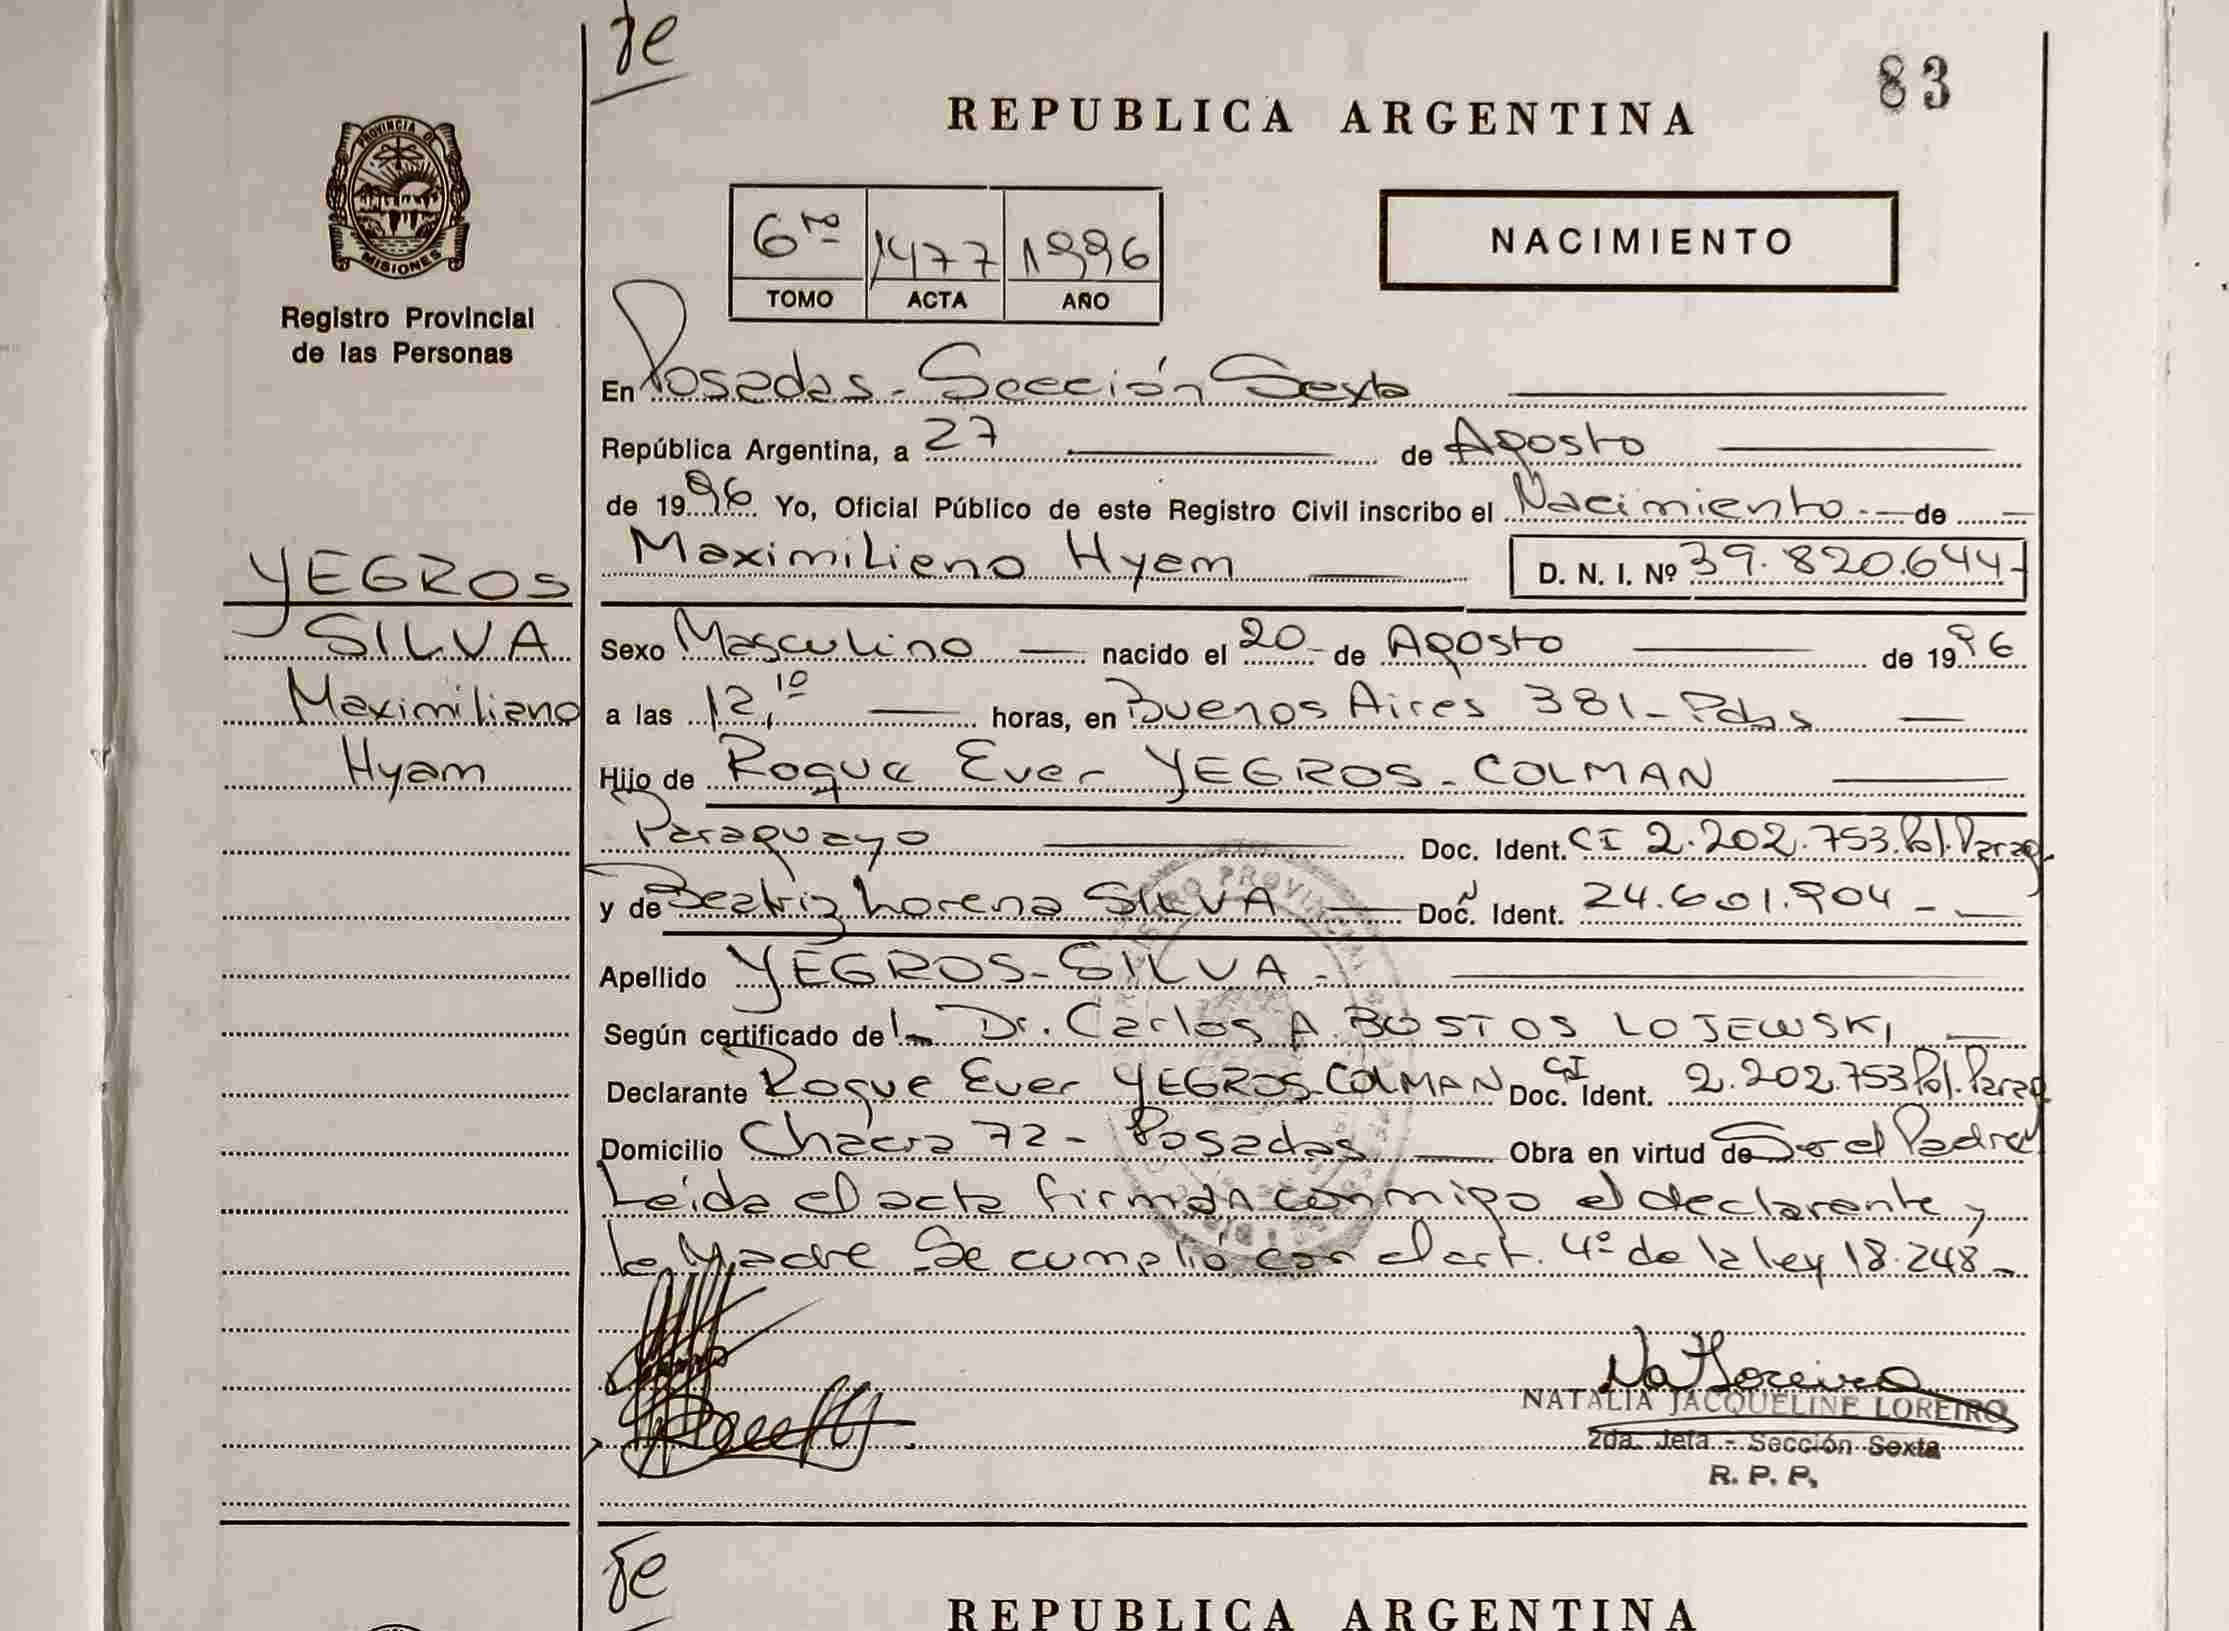 fe
83
REPUBLICA ARGENTINA
PROVINCIA DE
MISIONES
Registro Provincial
de las Personas
6to 1477 1996
TOMO ACTA AÑO
NACIMIENTO
En Posadas - Sección Sexta
República Argentina, a 27 de Agosto
de 1996 Yo, Oficial Público de este Registro Civil inscribo el Nacimiento de
Maximiliano Hyam D. N. I. Nº 39.820.644
YEGROS
SILVA
Maximiliano
Hyam
Sexo Masculino nacido el 20 de Agosto de 1996
a las 12,10 horas, en Buenos Aires 381 - Pdas
Hijo de Roque Ever YEGROS - COLMAN
Paraguayo Doc. Ident. CI 2.202.753 Pol. Parag
y de Beatriz Lorena SILVA Doc. Ident. 24.601.904 -
Apellido YEGROS - SILVA -
Según certificado del Dr. Carlos A. BOSTOS LOJEWSKI
Declarante Roque Ever YEGROS - COLMAN Doc. Ident. CI 2.202.753 Pol. Parag
Domicilio Chacra 72 - Posadas Obra en virtud de Ser el Padre
Leida el acta firman conmigo el declarante y
la Madre Se cumplió con el art. 4º de la ley 18.248 -
NATALIA JACQUELINE LOREIRO
2da. Jefa - Sección Sexta
R. P. P.
fe
REPUBLICA ARGENTINA